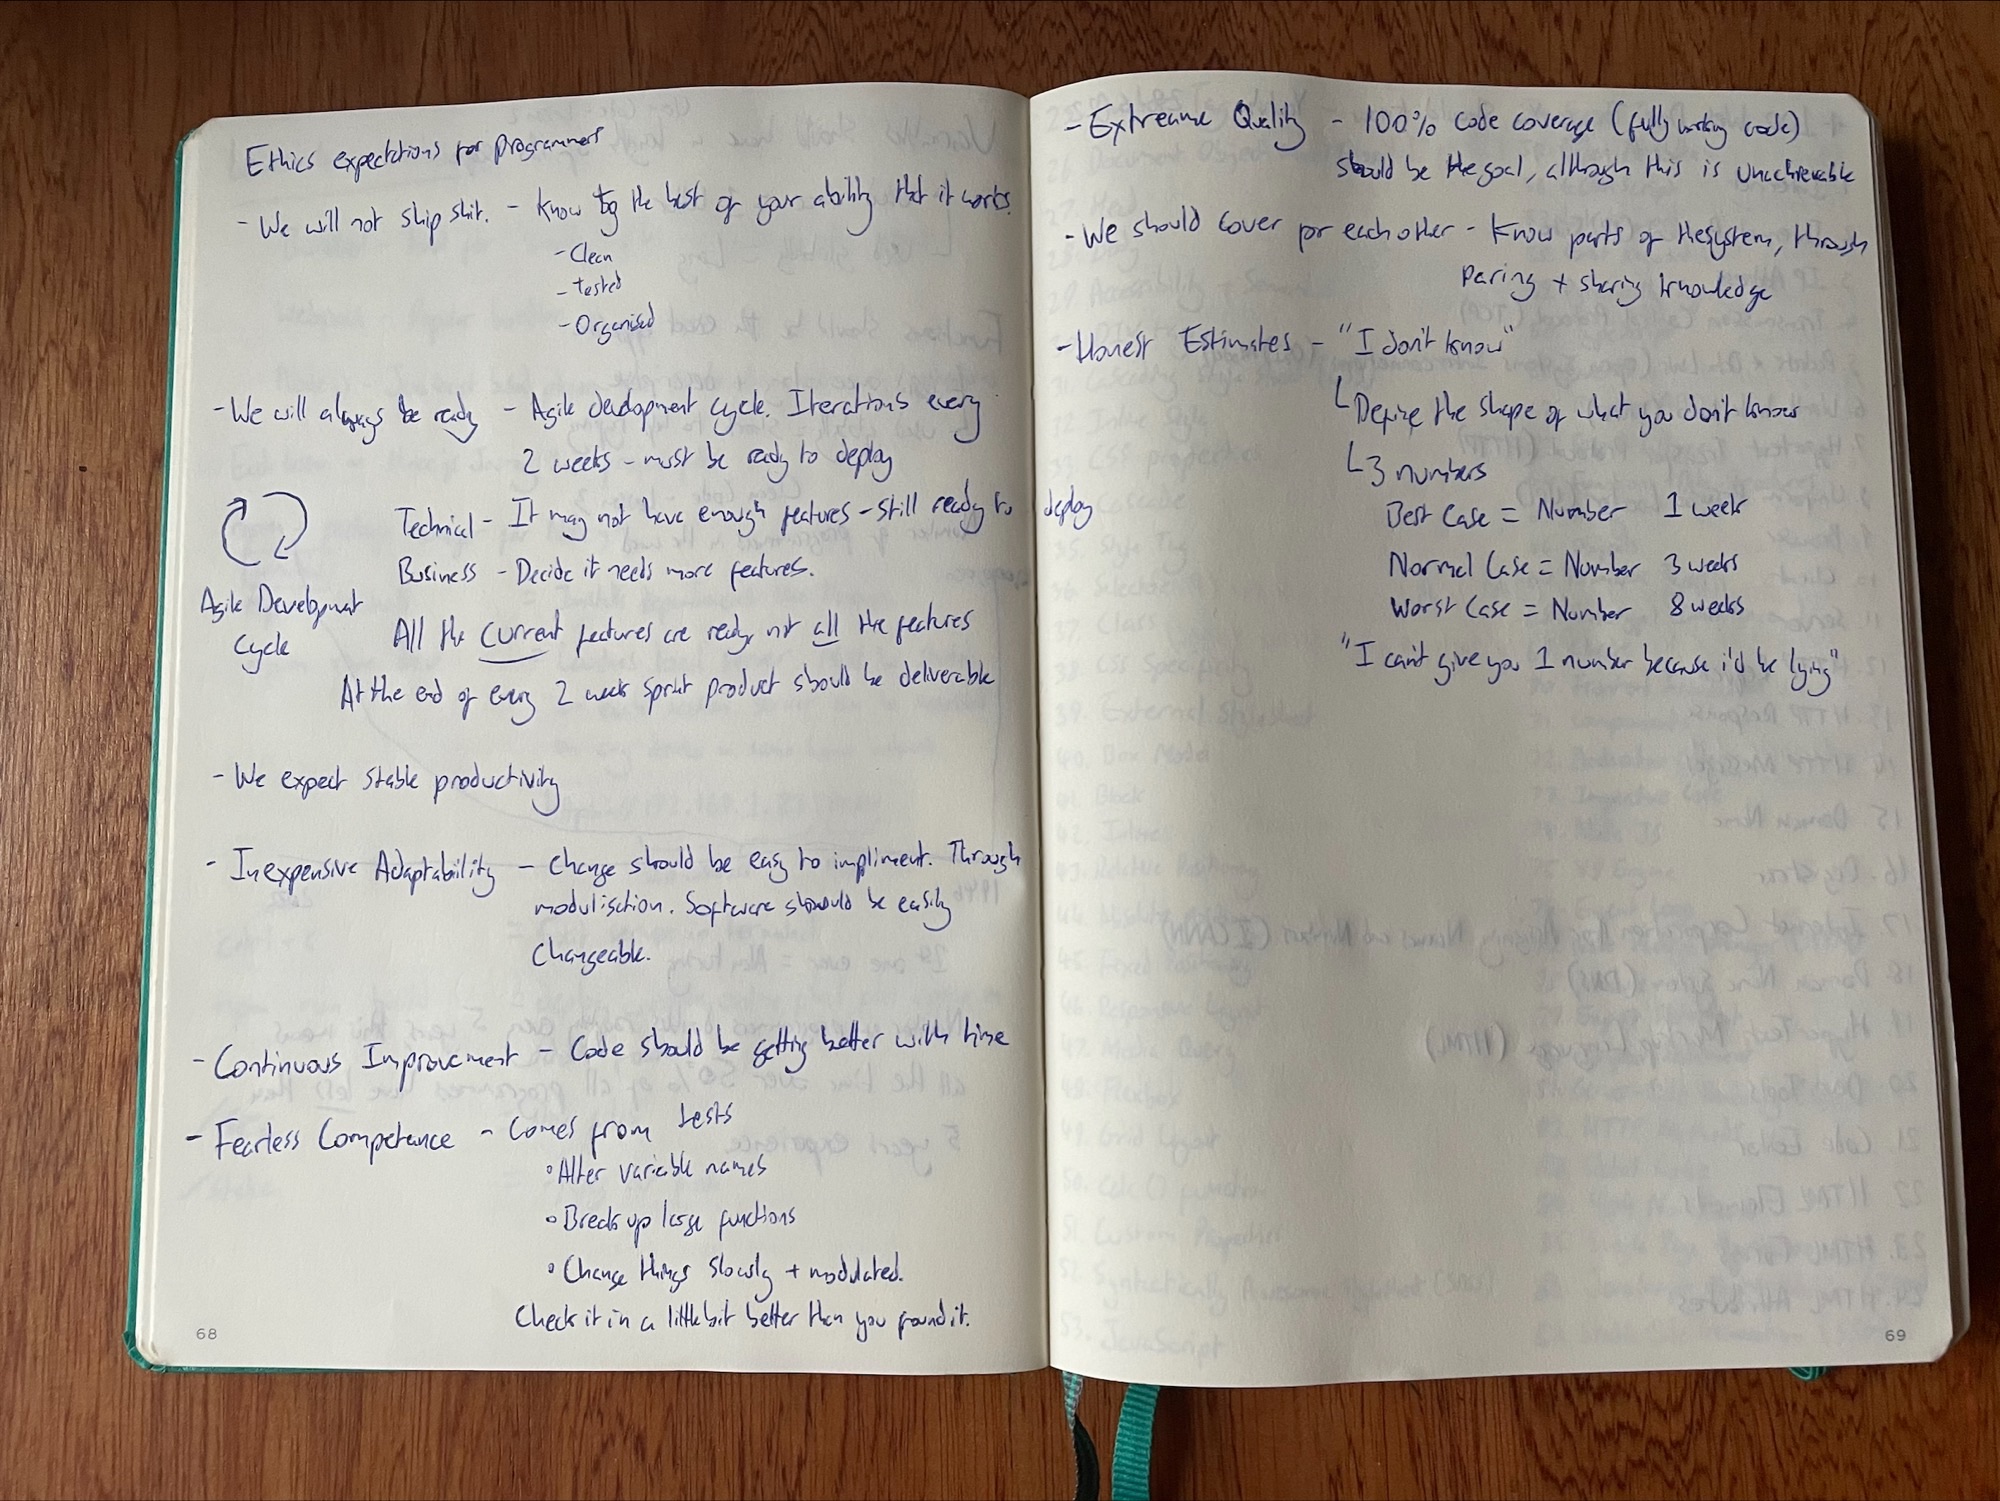 Ethics expectations for programmers
- We will not ship shit. - Know to the best of your ability that it works.
- Clean
- tested
- Organised
- We will always be ready - Agile development cycle. Iterations every
2 weeks - must be ready to deploy
Technical - It may not have enough features - still ready to deploy
Business - Decide it needs more features.
Agile Development
Cycle
All the current features are ready, not all the features
At the end of every 2 week sprint product should be deliverable
- We expect stable productivity
- Inexpensive Adaptability - Change should be easy to impliment. Through
modulisation. Software should be easily
Changeable.
- Continuous Improvement - Code should be getting better with time
- Fearless Competance - Comes from tests
• Alter variable names
• Break up large functions
• Change things slowly + modulated.
Check it in a little bit better than you found it.
68
- Extreame Quality - 100% code coverage (fully working code)
should be the goal, although this is unachievable
- We should cover for each other - Know parts of the system, through
paring + sharing knowledge
- Honest Estimates - "I don't know"
Define the shape of what you don't know
3 numbers
Best Case = Number 1 week
Normal Case = Number 3 weeks
Worst Case = Number 8 weeks
"I can't give you 1 number because i'd be lying"
69